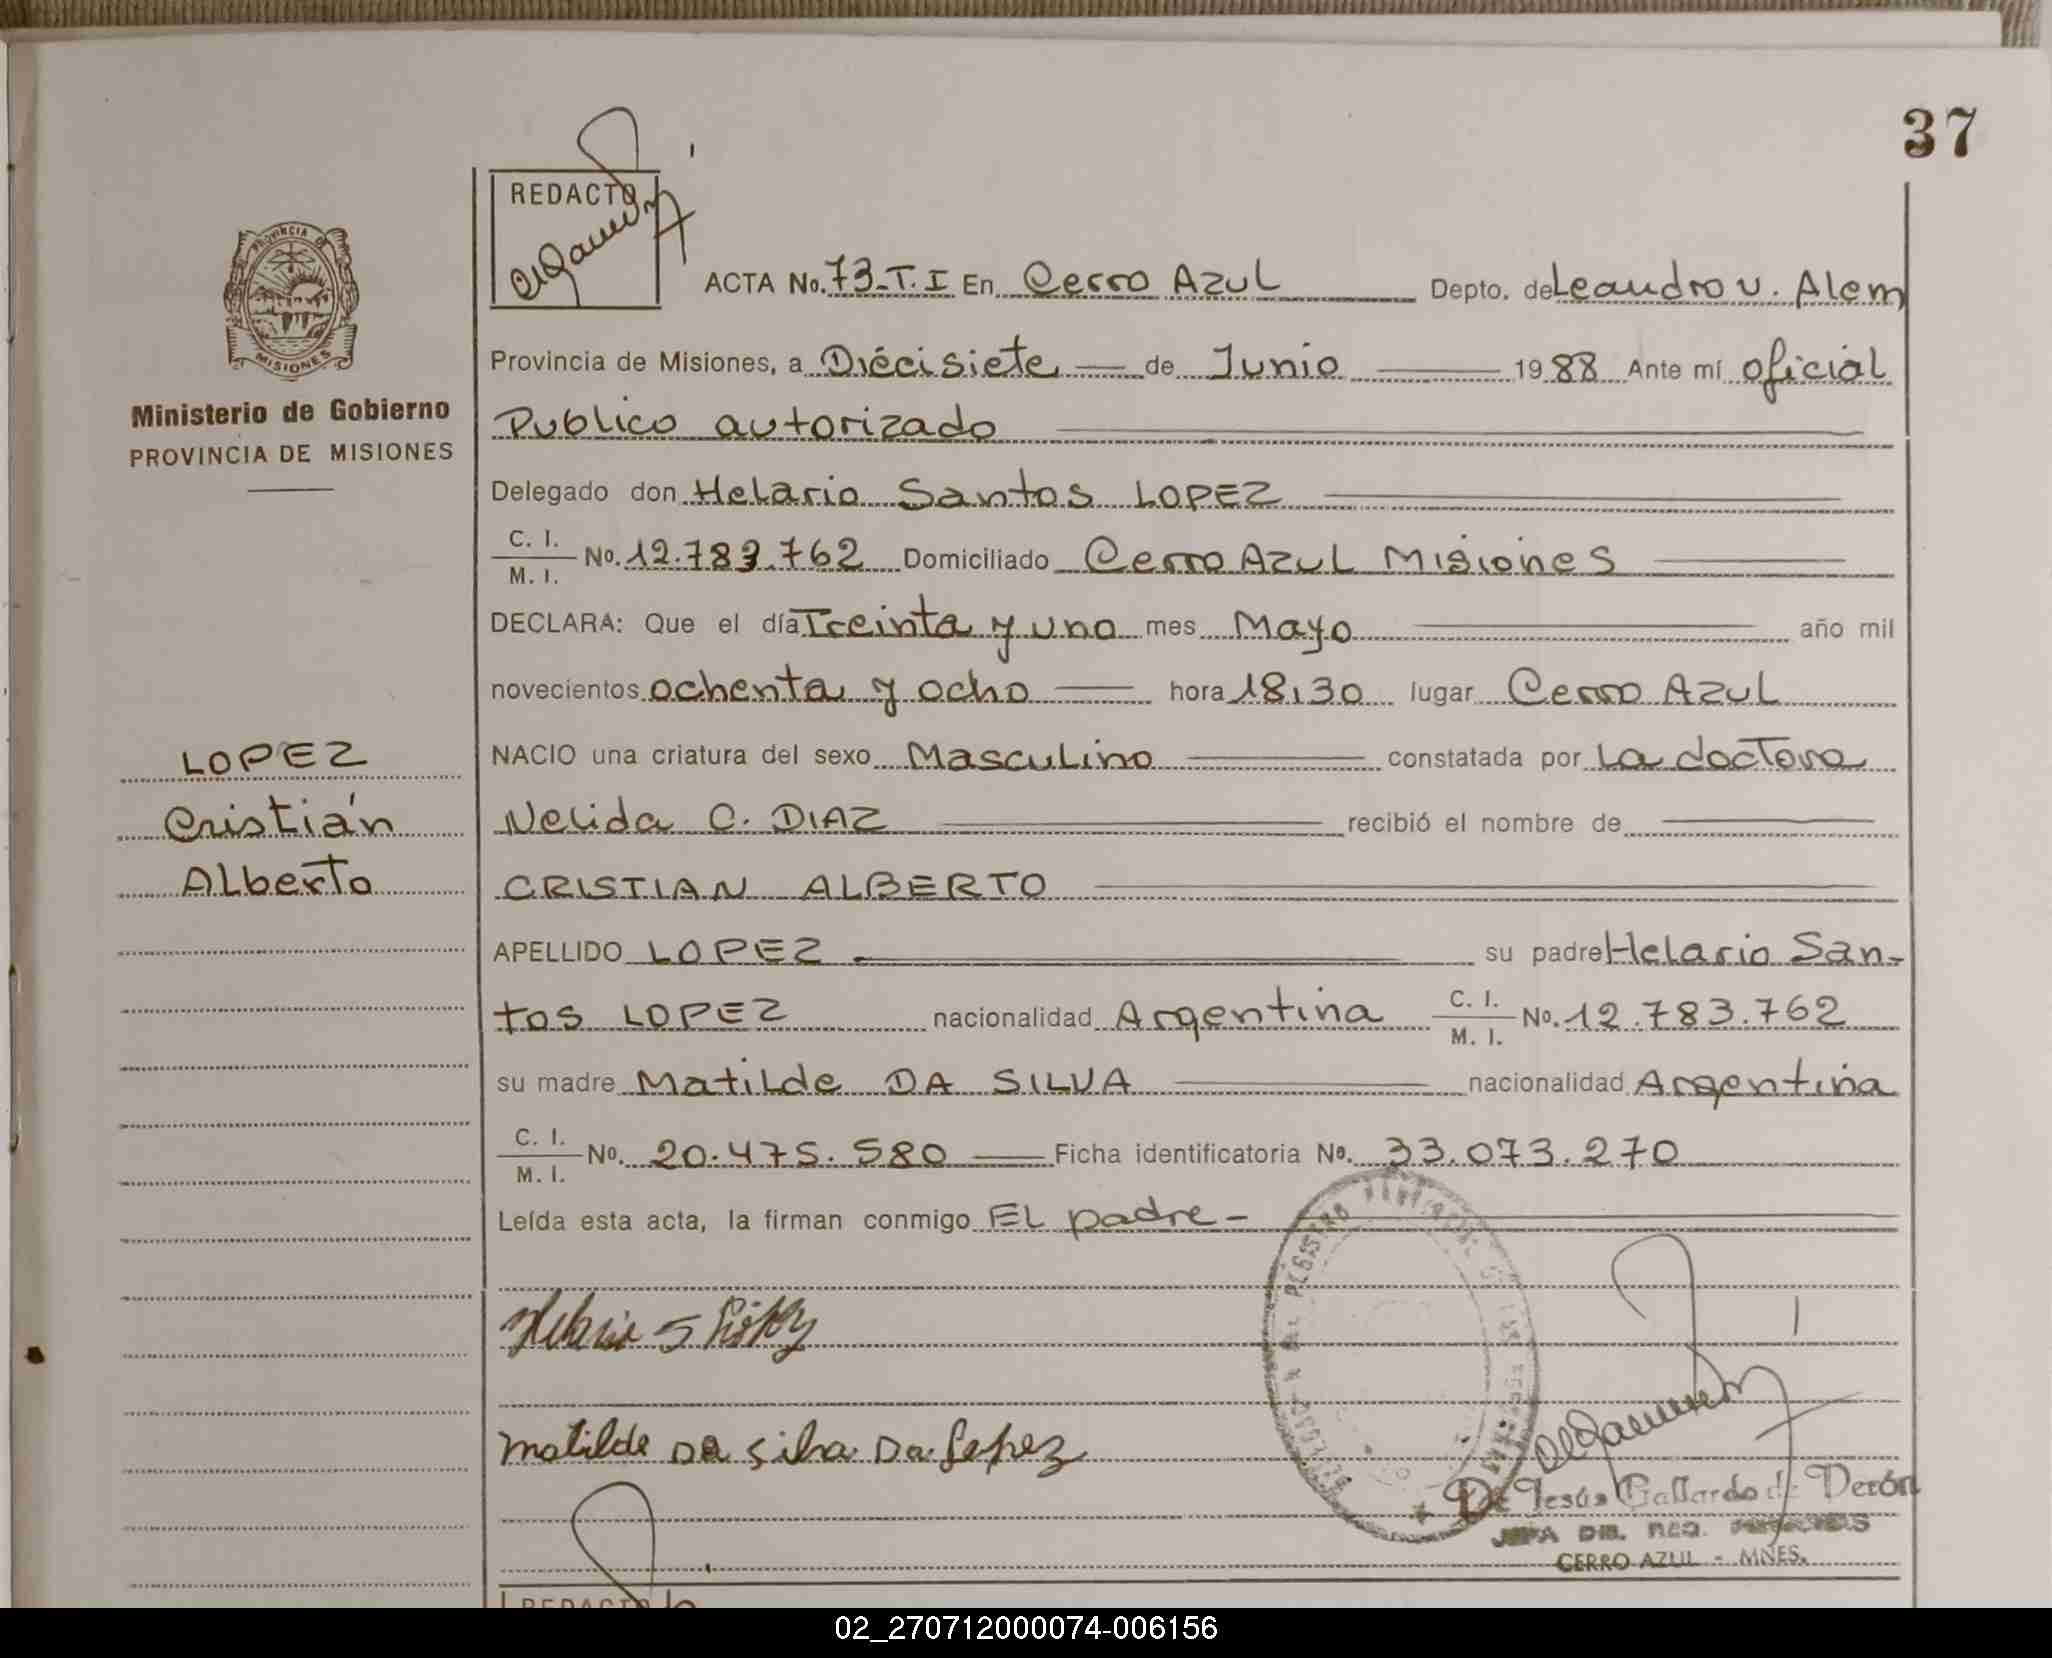 37
REDACTO
PROVINCIA DE
MISIONES
Ministerio de Gobierno
PROVINCIA DE MISIONES
LOPEZ
Cristián
Alberto
ACTA No. 73-T.I En Cerro AZUL Depto. de Leandro v. Alem
Provincia de Misiones, a Diécisiete de Junio 1988 Ante mí oficial
Publico autorizado
Delegado don Helario Santos LOPEZ
C. I.
M. I. No. 12.783.762 Domiciliado Cerro AZUL Misiones
DECLARA: Que el día Treinta y uno mes Mayo año mil
novecientos ochenta y ocho hora 18,30 lugar Cerro AZUL
NACIO una criatura del sexo Masculino constatada por La doctora
Nelida C. DIAZ recibió el nombre de
CRISTIAN ALBERTO
APELLIDO LOPEZ su padre Helario San-
tos LOPEZ nacionalidad Argentina C. I.
M. I. No. 12.783.762
su madre Matilde DA SILVA nacionalidad Argentina
C. I.
M. I. No. 20.475.580 Ficha identificatoria No. 33.073.270
Leída esta acta, la firman conmigo EL padre-
Matilde Da Silva Da Lopez
De Jesús Gallardo de Verón
JEFA DIS. REG.
CERRO AZUL - MNES.
REDACTO
02_270712000074-006156